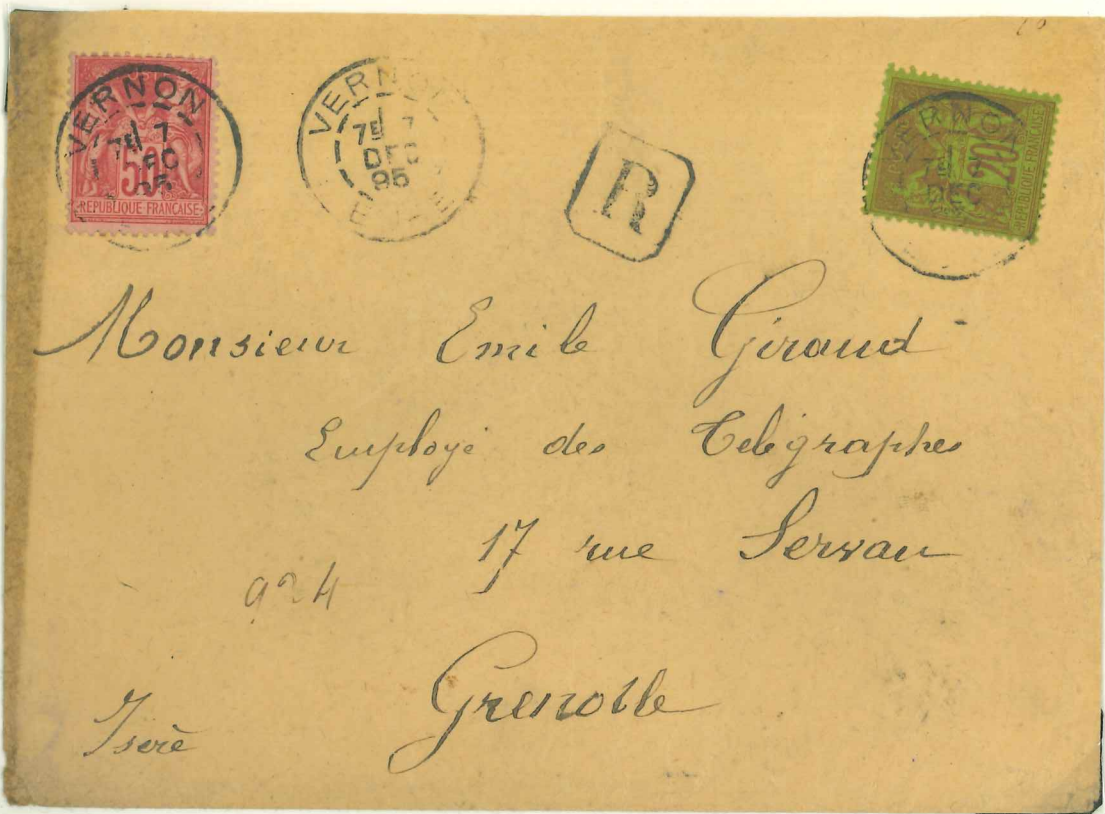 VERNON
7E 7
DEC
95
50
REPUBLIQUE FRANÇAISE
VERNON
7E 7
DEC
95
EURE
R
20
REPUBLIQUE FRANÇAISE
DEC
Monsieur Emile Giraud
Employé des Telégraphes
17 rue Servan
924
Grenoble
Isère